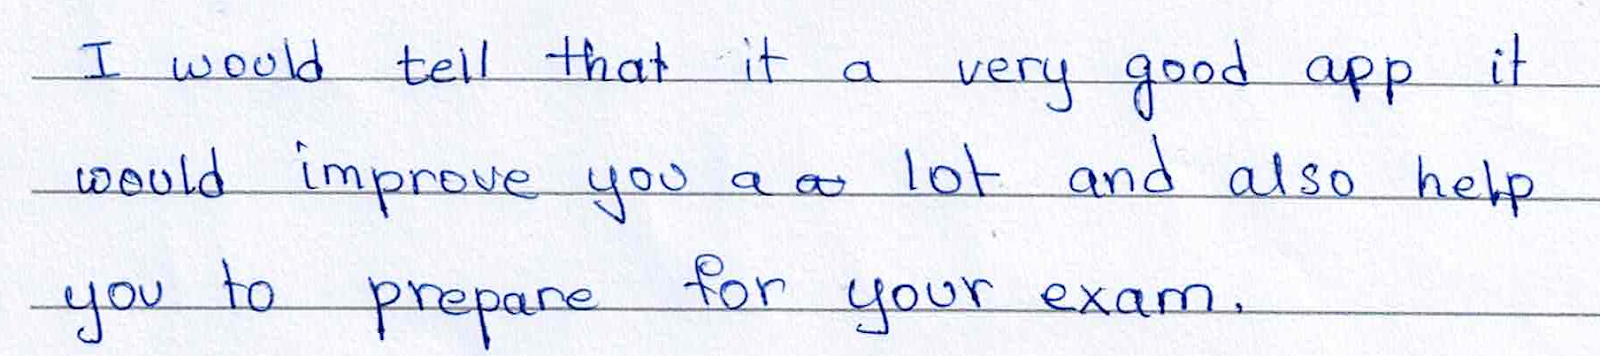 I would tell that it a very good app it
would improve you a lot and also help
you to prepare for your exam.